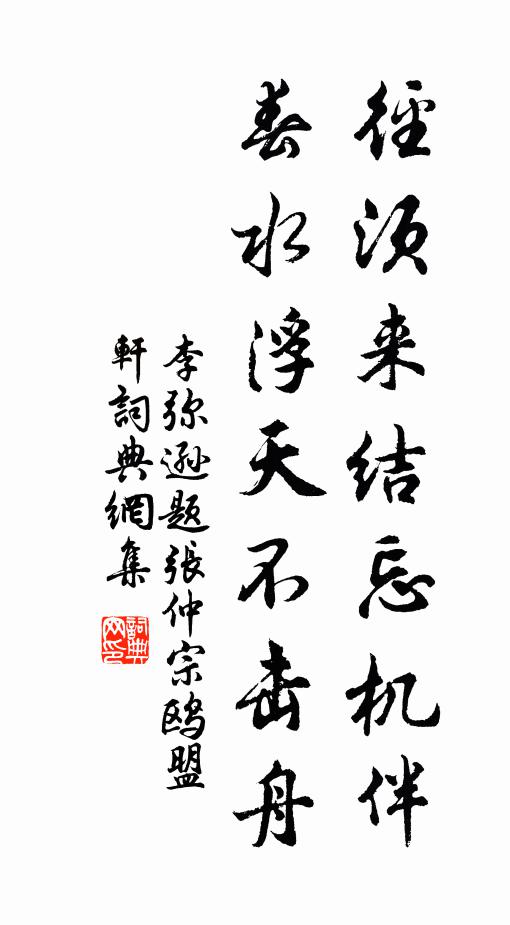 徑须来结忘机伴
春水浮天不击舟
李弥逊题張仲宗鸥盟
軒詞典網集
詞典网印